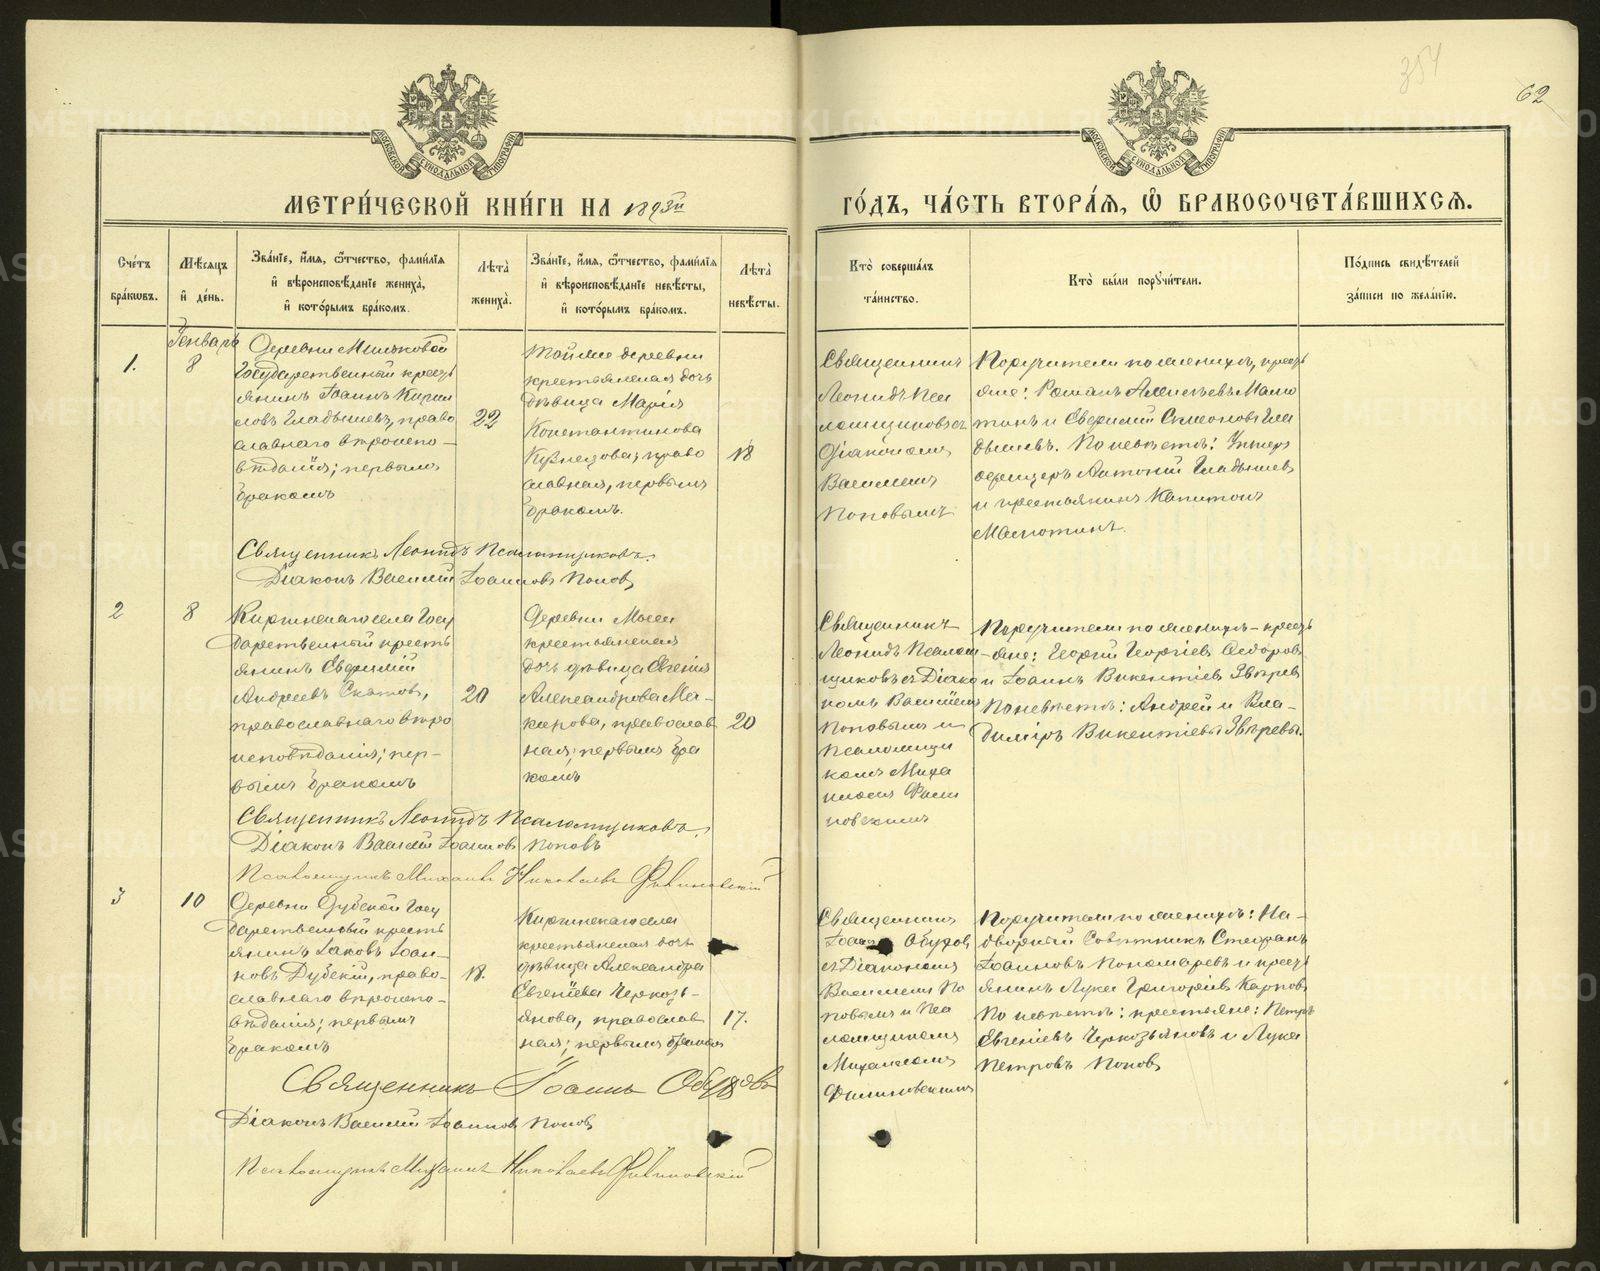 354
62
МОСКОВСКОЙ СѴНОДАЛЬНОЙ ТИПОГРАФІИ
МОСКОВСКОЙ СѴНОДАЛЬНОЙ ТИПОГРАФІИ
МЕТРИ́ЧЕСКОЙ КНИ́ГИ НА 1893й
ГО́ДЪ, ЧА́СТЬ ВТОРА́Я, Ѽ БРАКОСОЧЕТА́ВШИХСЯ.
Сче́тъ
бра́кωвъ.
Мѣ́сяцъ
и҆ де́нь.
Зва́нїе, и҆́мя, ѻ҆́тчество, фами́лїя
и҆ вѣроисповѣ́данїе жениха̀,
и҆ кото́рымъ бра́комъ.
Лѣта̀
жениха̀.
Зва́нїе, и҆́мя, ѻ҆́тчество, фами́лїя
и҆ вѣроисповѣ́данїе невѣ́сты,
и҆ кото́рымъ бра́комъ.
Лѣта̀
невѣ́сты.
Кто̀ соверша́лъ
та́инство.
Кто̀ бы́ли порꙋчи́тели.
По́дпись свидѣ́телей
за́писи по жела́нїю.
Генварь
1.
8
Деревни
Государственный кресть
янинъ Іоаннъ Кирил
ловъ Гладышевъ, право
славнаго вѣроиспо-
вѣданія; первымъ
бракомъ
22
Той же деревни
крестьянская дочь
дѣвица Марія
Константинова
Кузнецова; право
славная, первымъ
бракомъ.
18
Священникъ
Леонидъ Пса
ломщиковъ съ
Діакономъ
Василіемъ
Поповымъ
Поручители по женихѣ, кресть
яне: Романъ Алексѣевъ Мало
тинъ и Евфимій Симеоновъ Гла
дышевъ. По невѣстѣ: Унтеръ
офицеръ Антоній Гладышевъ
и крестьянинъ Капитонъ
Священникъ Леонидъ Псаломщиковъ.
Діаконъ Василій Іоанновъ Поповъ
2
8
Киргинскаго села Госу
дарственный кресть
янинъ Евфимій
Андреевъ Скатовъ,
православнаго вѣро
исповѣданія; пер-
вымъ бракомъ
20
Деревни
крестьянская
дочь дѣвица Евгенія
Александрова Ма-
карова, православ
ная; первымъ бра
комъ
20
Священникъ
Леонидъ Псалом
щиковъ съ Діако
номъ Василіемъ
Поповымъ и
Псаломщи
комъ Миха
иломъ Фили
новскимъ
Поручители по женихѣ - кресть
-яне: Георгій Георгіевъ Ѳедоровъ
и Іоаннъ Викентіевъ Звѣревъ
По невѣстѣ: Андрей и Вла-
димиръ Викентіевы Звѣревы.
Священникъ Леонидъ Псаломщиковъ.
Діаконъ Василій Іоанновъ Поповъ
Псаломщикъ Михаилъ Николаевъ Филиновскій
3
10
Деревни Дубской Госу
дарственный кресть
янинъ Іаковъ Іоан-
новъ Дубскій, право-
славнаго вѣроиспо-
вѣданія; первымъ
бракомъ
18.
Киргинскаго села
крестьянская дочь
дѣвица Александра
Евгеніева Черкозь-
янова, православ
ная; первымъ бракомъ
17.
Священникъ
Іоаннъ Обуховъ
съ Діакономъ
Василіемъ По
повымъ и Пса
ломщикомъ
Михаиломъ
Филиновскимъ
Поручители по женихѣ: На-
дворный Совѣтникъ Стефанъ
Іоанновъ Пономаревъ и кресть
янинъ Лука Григоріевъ Карповъ
По невѣстѣ: крестьяне: Петръ
Евгеніевъ Черкозьяновъ и Лука
Петровъ Поповъ
Священникъ Іоаннъ Обуховъ
Діаконъ Василій Іоанновъ Поповъ
Псаломщикъ Михаилъ Николаевъ Филиновскій
METRIKI.GASO-URAL.RU